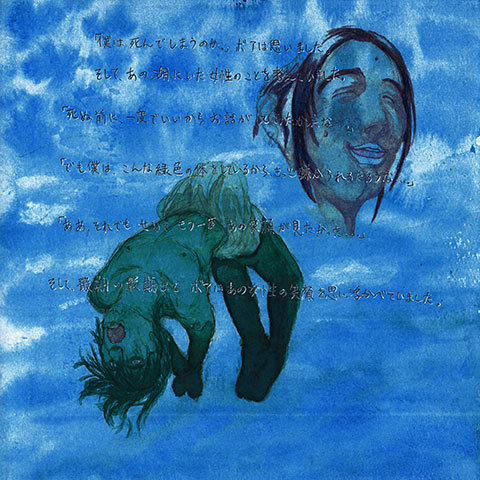 「僕は死んでしまうのか。」ボアは思いました。
そして、あの湖にいた女性のことを
「死ぬ前に、一度でいいからお話がしてみたかったな
「でも僕は、こんな緑色の体をしているから、
「ああ、それでも せめて もう一度、あの笑顔が見たかった。」
そして、最期の最期まで ボアはあの女性の笑顔を思い浮かべていました。